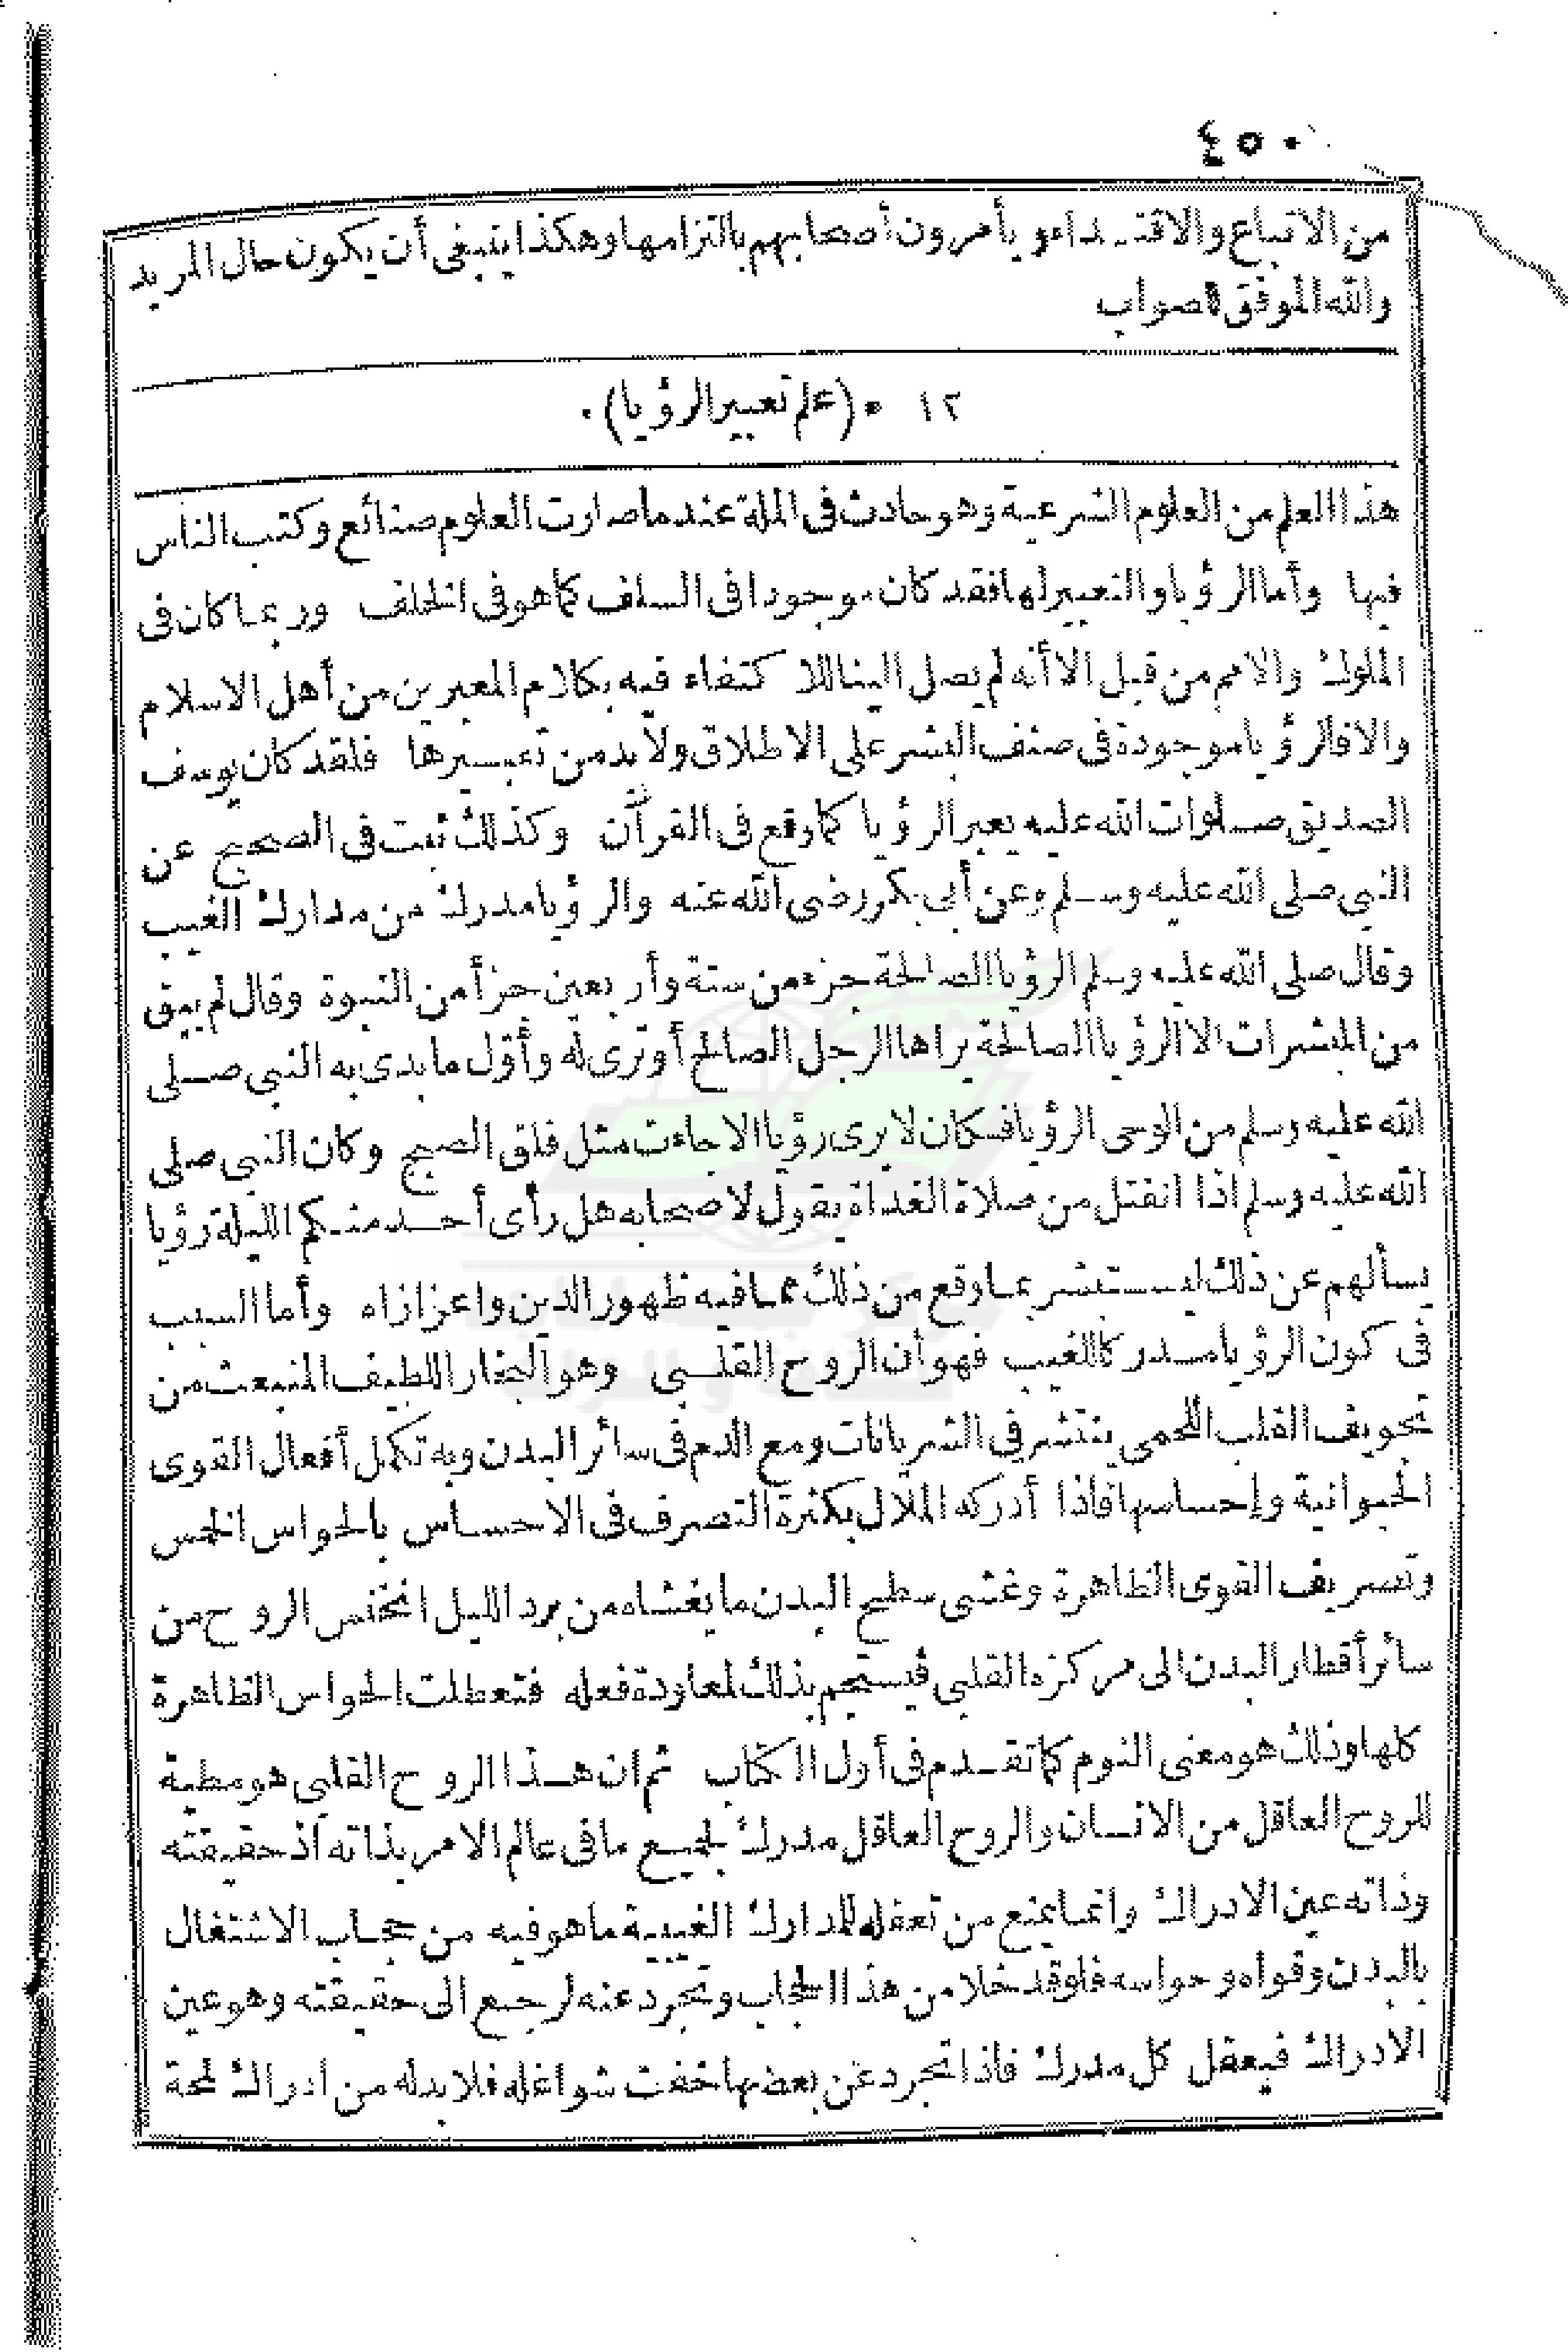 ٤٥٠
من الاتباع والاقتداء ويأمرون أصحابهم بالتزامها وهكذا ينبغى أن يكون حال المريد
والله الموفق للصواب
١٢ * (علم تعبير الرؤيا) *
هذا العلم من العلوم الشرعية وهو حادث فى الملة عند ما صارت العلوم صنائع وكتب الناس
فيها وأما الرؤيا والتعبير لها فقد كان موجودا فى السلف كما هو فى الخلف وربما كان فى
الملوك والامم من قبل الا أنه لم يصل الينا للا كتفاء فيه بكلام المعبرين من أهل الاسلام
والا فالرؤيا موجودة فى صنف البشر على الاطلاق ولا بد من تعبيرها فلقد كان يوسف
الصديق صلوات الله عليه يعبر الرؤيا كما وقع فى القرآن وكذلك ثبت فى الصحيح عن
النبي صلى الله عليه وسلم وعن أبي بكر رضى الله عنه والرؤيا مدرك من مدارك الغيب
وقال صلى الله عليه وسلم الرؤيا الصالحة جزء من ستة وأربعين جزأ من النبوة وقال لم يبق
من المبشرات الا الرؤيا الصالحة يراها الرجل الصالح أو ترى له وأول ما بدى به النبي صلى
الله عليه وسلم من الوحى الرؤيا فكان لا يرى رؤيا الا جاءت مثل فلق الصبح وكان النبي صلى
الله عليه وسلم اذا انفتل من صلاة الغداة يقول لاصحابه هل رأى أحد منكم الليلة رؤيا
يسألهم عن ذلك ليستبشر بما وقع من ذلك مما فيه ظهور الدين واعزازاه وأما السبب
فى كون الرؤيا مدركا للغيب فهو أن الروح القلبي وهو البخار اللطيف المنبعث من
تجويف القلب اللحمى ينتشر في الشريانات ومع الدم فى سائر البدن وبه تكمل أفعال القوى
الحيوانية وإحساسها فاذا أدركه الملال بكثرة التصرف فى الاحساس بالحواس الخمس
وتصريف القوى الظاهرة وغشى سطح البدن ما يغشاه من برد الليل انخنس الروح من
سائر أقطار البدن الى مركزه القلبى فيستجم بذلك لمعاودة فعله فتعطلت الحواس الظاهرة
كلها وذلك هو معنى النوم كما تقدم فى أول الكتاب ثم ان هذا الروح القلبى هو مطية
للروح العاقل من الانسان والروح العاقل مدرك لجميع ما فى عالم الامر بذاته اذ حقيقته
وذاته عين الادراك وانما يمنع من تعقله للمدارك الغيبية ما هو فيه من حجاب الاشتغال
بالبدن وقواه وحواسه فلو قد خلا من هذا الحجاب وتجرد عنه لرجع الى حقيقته وهو عين
الادراك فيعقل كل مدرك فاذا تجرد عن بعضها خفت شواغله فلا بد له من ادراك لمحة